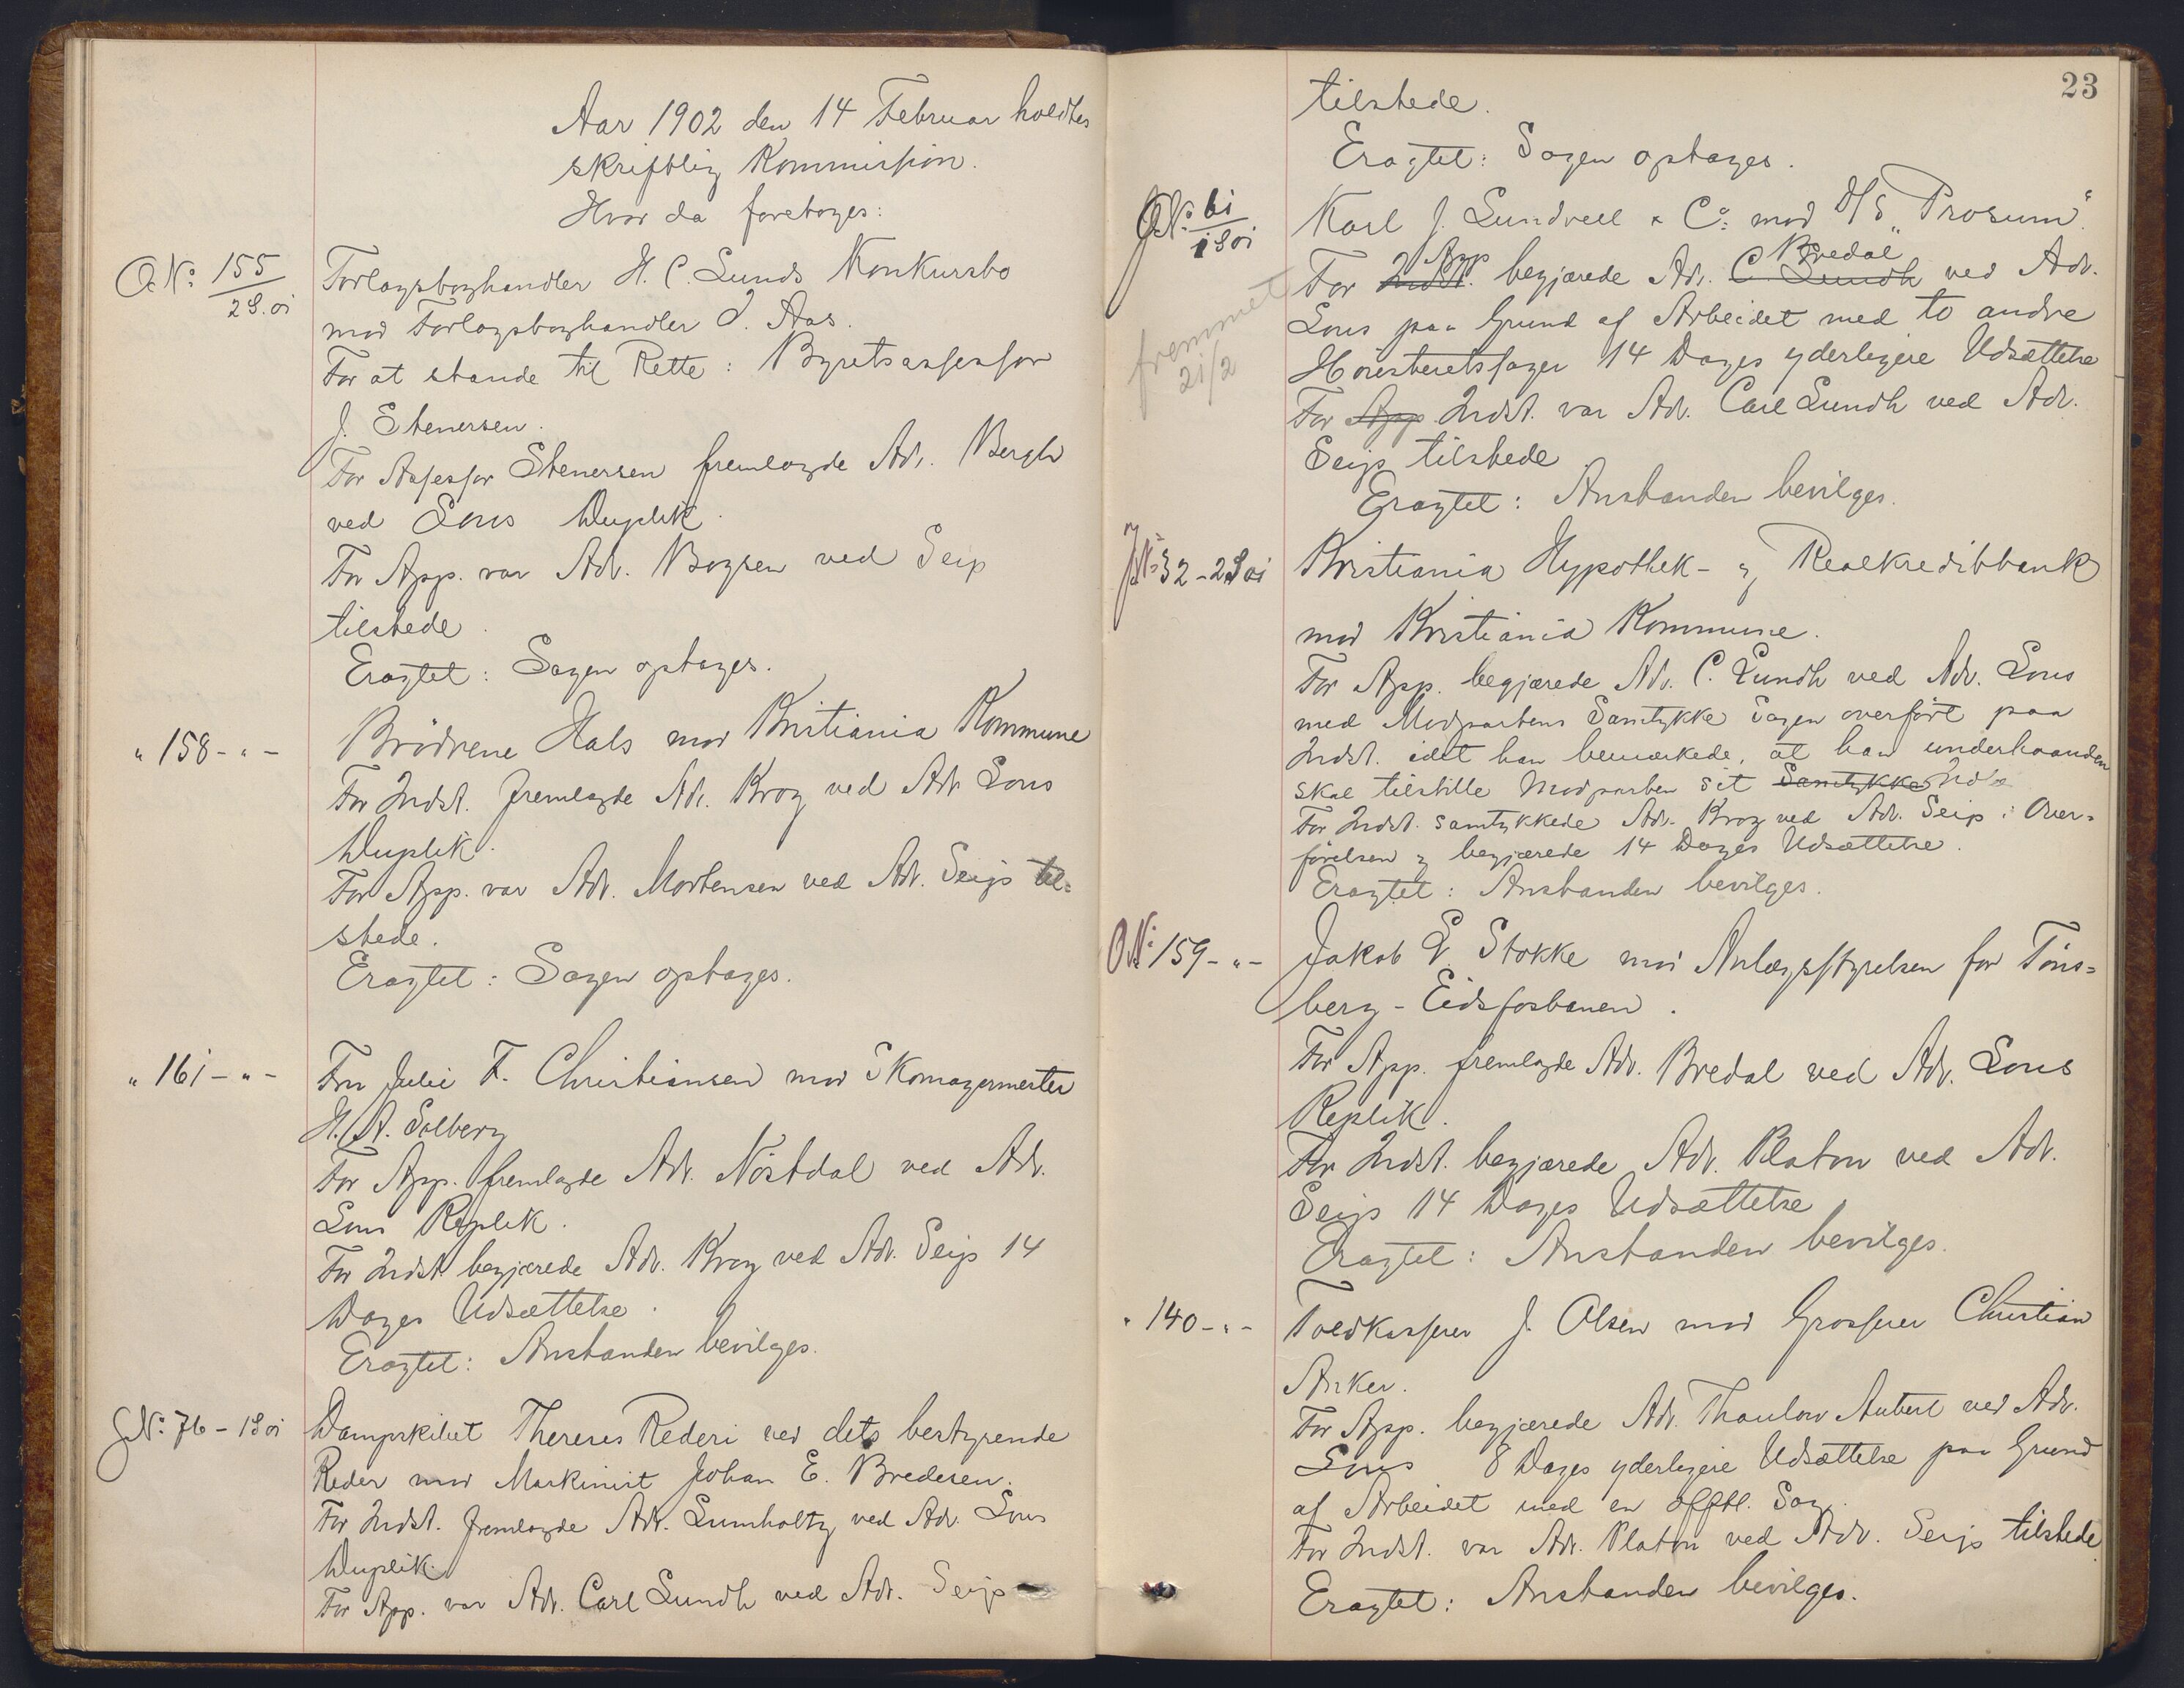 Aar 1902 den 14 Februar holdtes
skriftlig Kommission.
Hvor da foretoges:
O. No: 155/2S.01
Forlagsboghandler H. C. Lunds Konkursbo
mod Forlagsboghandler O. Aas.
For at stande til Rette: Byretsassessor
J. Stenersen.
For Assessor Stenersen fremlagde Adv. Bergh
ved Lous Duplik.
For App. var Adv. Boysen ved Seip
tilstede.
Eragtet: Sagen optages.
" 158 - " -
Brödrene Hals mod Kristiania Kommune
For Indst. fremlagde Adv. Krog ved Adv Lous
Duplik.
For App. var Adv. Mortensen ved Adv. Seip til=
stede.
Eragtet: Sagen optages.
" 161 - " -
Fru Julie F. Christiansen mod Skomagermester
H. A. Solberg
For App. fremlagde Adv. Nöstdal ved Adv.
Lous Replik.
For Indst. begjærede Adv. Krog ved Adv. Seip 14
Dages Udsættelse.
Eragtet: Anstanden bevilges.
J No: 76 - 1S 01
Dampskibet Thereses Rederi ved dets bestyrende
Reder mod Maskinist Johan E. Bredesen.
For Indst. fremlagde Adv. Lumholtz ved Adv. Lous
Duplik.
For App. var Adv. Carl Lundh ved Adv. Seip
23
tilstede.
Eragtet: Sagen optages.
J No: 61/1S01
Karl J. Lundvall & Co: mod D/S „Prosum“.
App Bredal
For Indst. begjærede Adv. C. Lundh ved Adv.
Lous paa Grund af Arbeidet med to andre
Höiesteretssager 14 Dages yderligere Udsættelse
fremmet
21/2
For App Indst. var Adv. Carl Lundh ved Adv.
Seip tilstede
Eragtet: Anstanden bevilges.
J No: 32 - 2S 01
Kristiania Hypothek- og Realkreditbank
mod Kristiania Kommune.
For App. begjærede Adv. C. Lundh ved Adv. Lous
med Modpartens Samtykke Sagen overfört paa
Indst. idet han bemærkede, at han underhaanden
skal tilstille Modparten sit Samtykke
For Indst. samtykkede Adv. Krog ved Adv. Seip i Over=
förelsen og begjærede 14 Dages Udsættelse.
Eragtet: Anstanden bevilges.
O No: 159 - " -
Jakob L. Stokke mod Anlægsstyrelsen for Töns=
berg - Eidsfosbanen.
For App. fremlagde Adv. Bredal ved Adv. Lous
Replik.
For Indst. begjærede Adv. Platou ved Adv.
Seip 14 Dages Udsættelse
Eragtet: Anstanden bevilges.
" 140 - " -
Toldkasserer J. Olsen mod Grosserer Christian
Anker.
For App. begjærede Adv. Thaulow Aubert ved Adv.
Lous 8 Dages yderligere Udsættelse paa Grund
af Arbeidet med en offtl. Sag.
For Indst. var Adv. Platou ved Adv. Seip tilstede.
Eragtet: Anstanden bevilges.